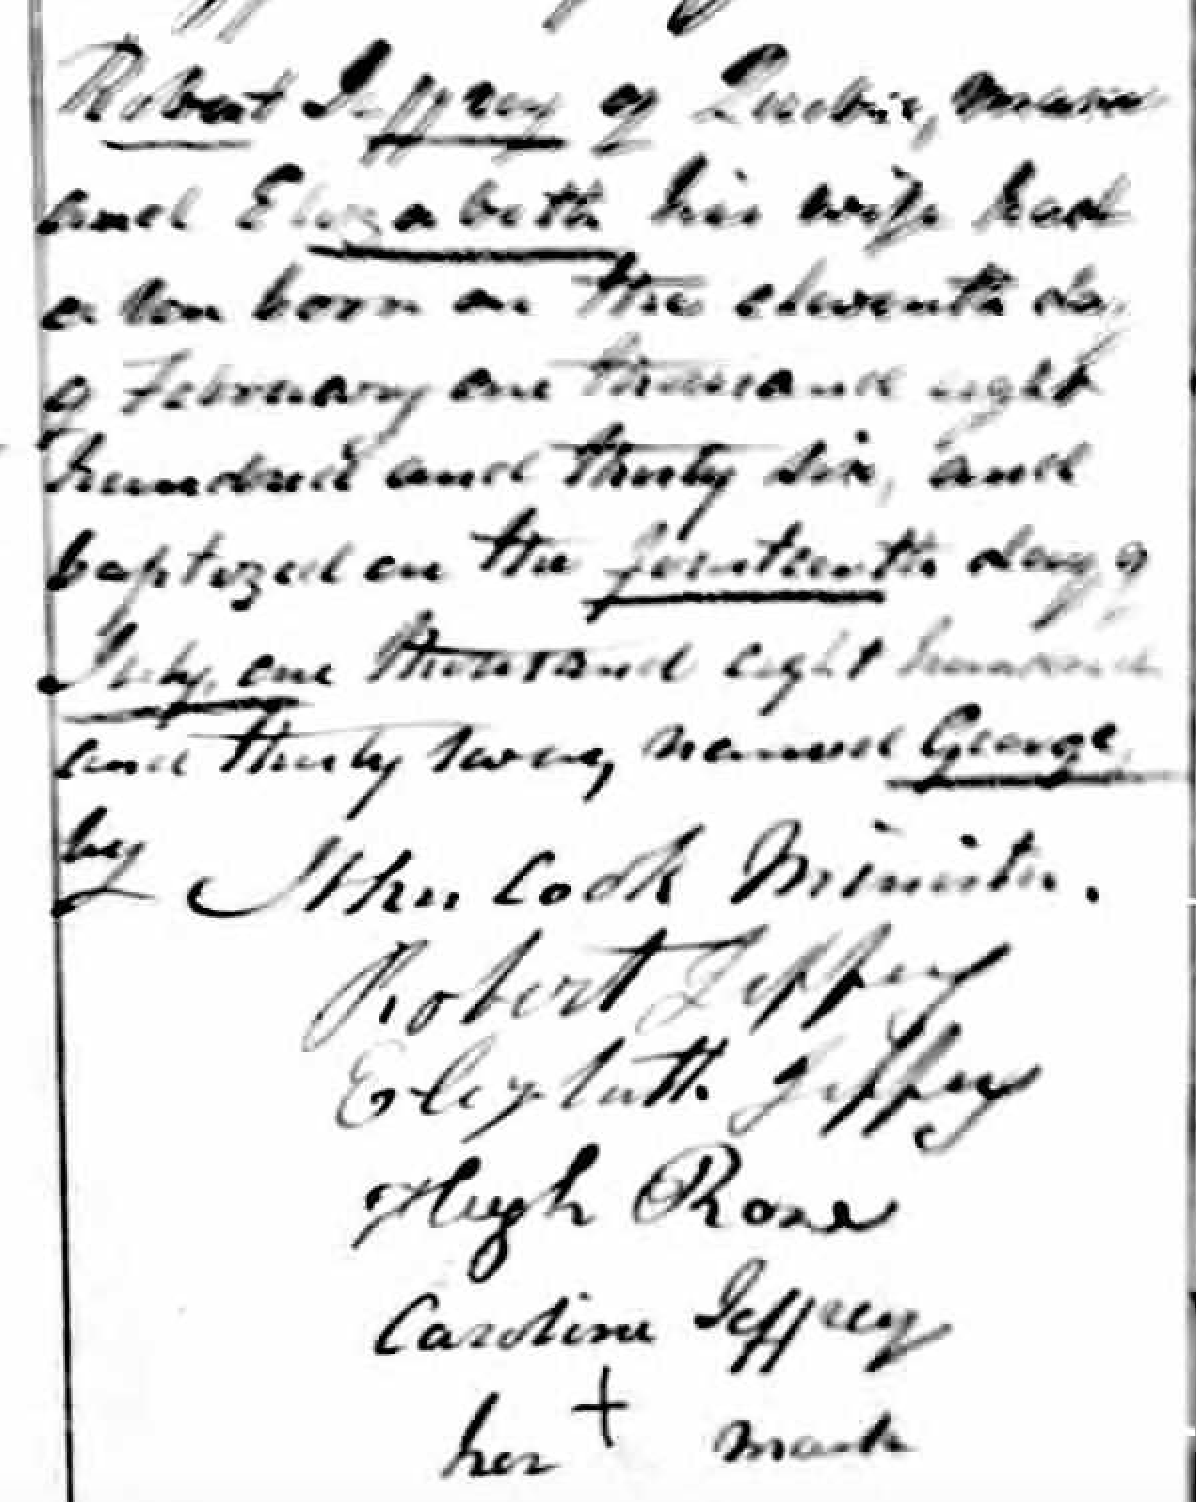 Robert Jeffrey of Quebec, Mason
and Elizabeth his wife had
a son born on the eleventh day
of February one thousand eight
hundred and thirty six, and
baptized on the fourteenth day of
July, one thousand eight hundred
and thirty named George,
by John Cook Minister.
Robert Jeffrey
Elizabeth Jeffrey
Hugh Rose
Caroline Jeffrey
her + mark